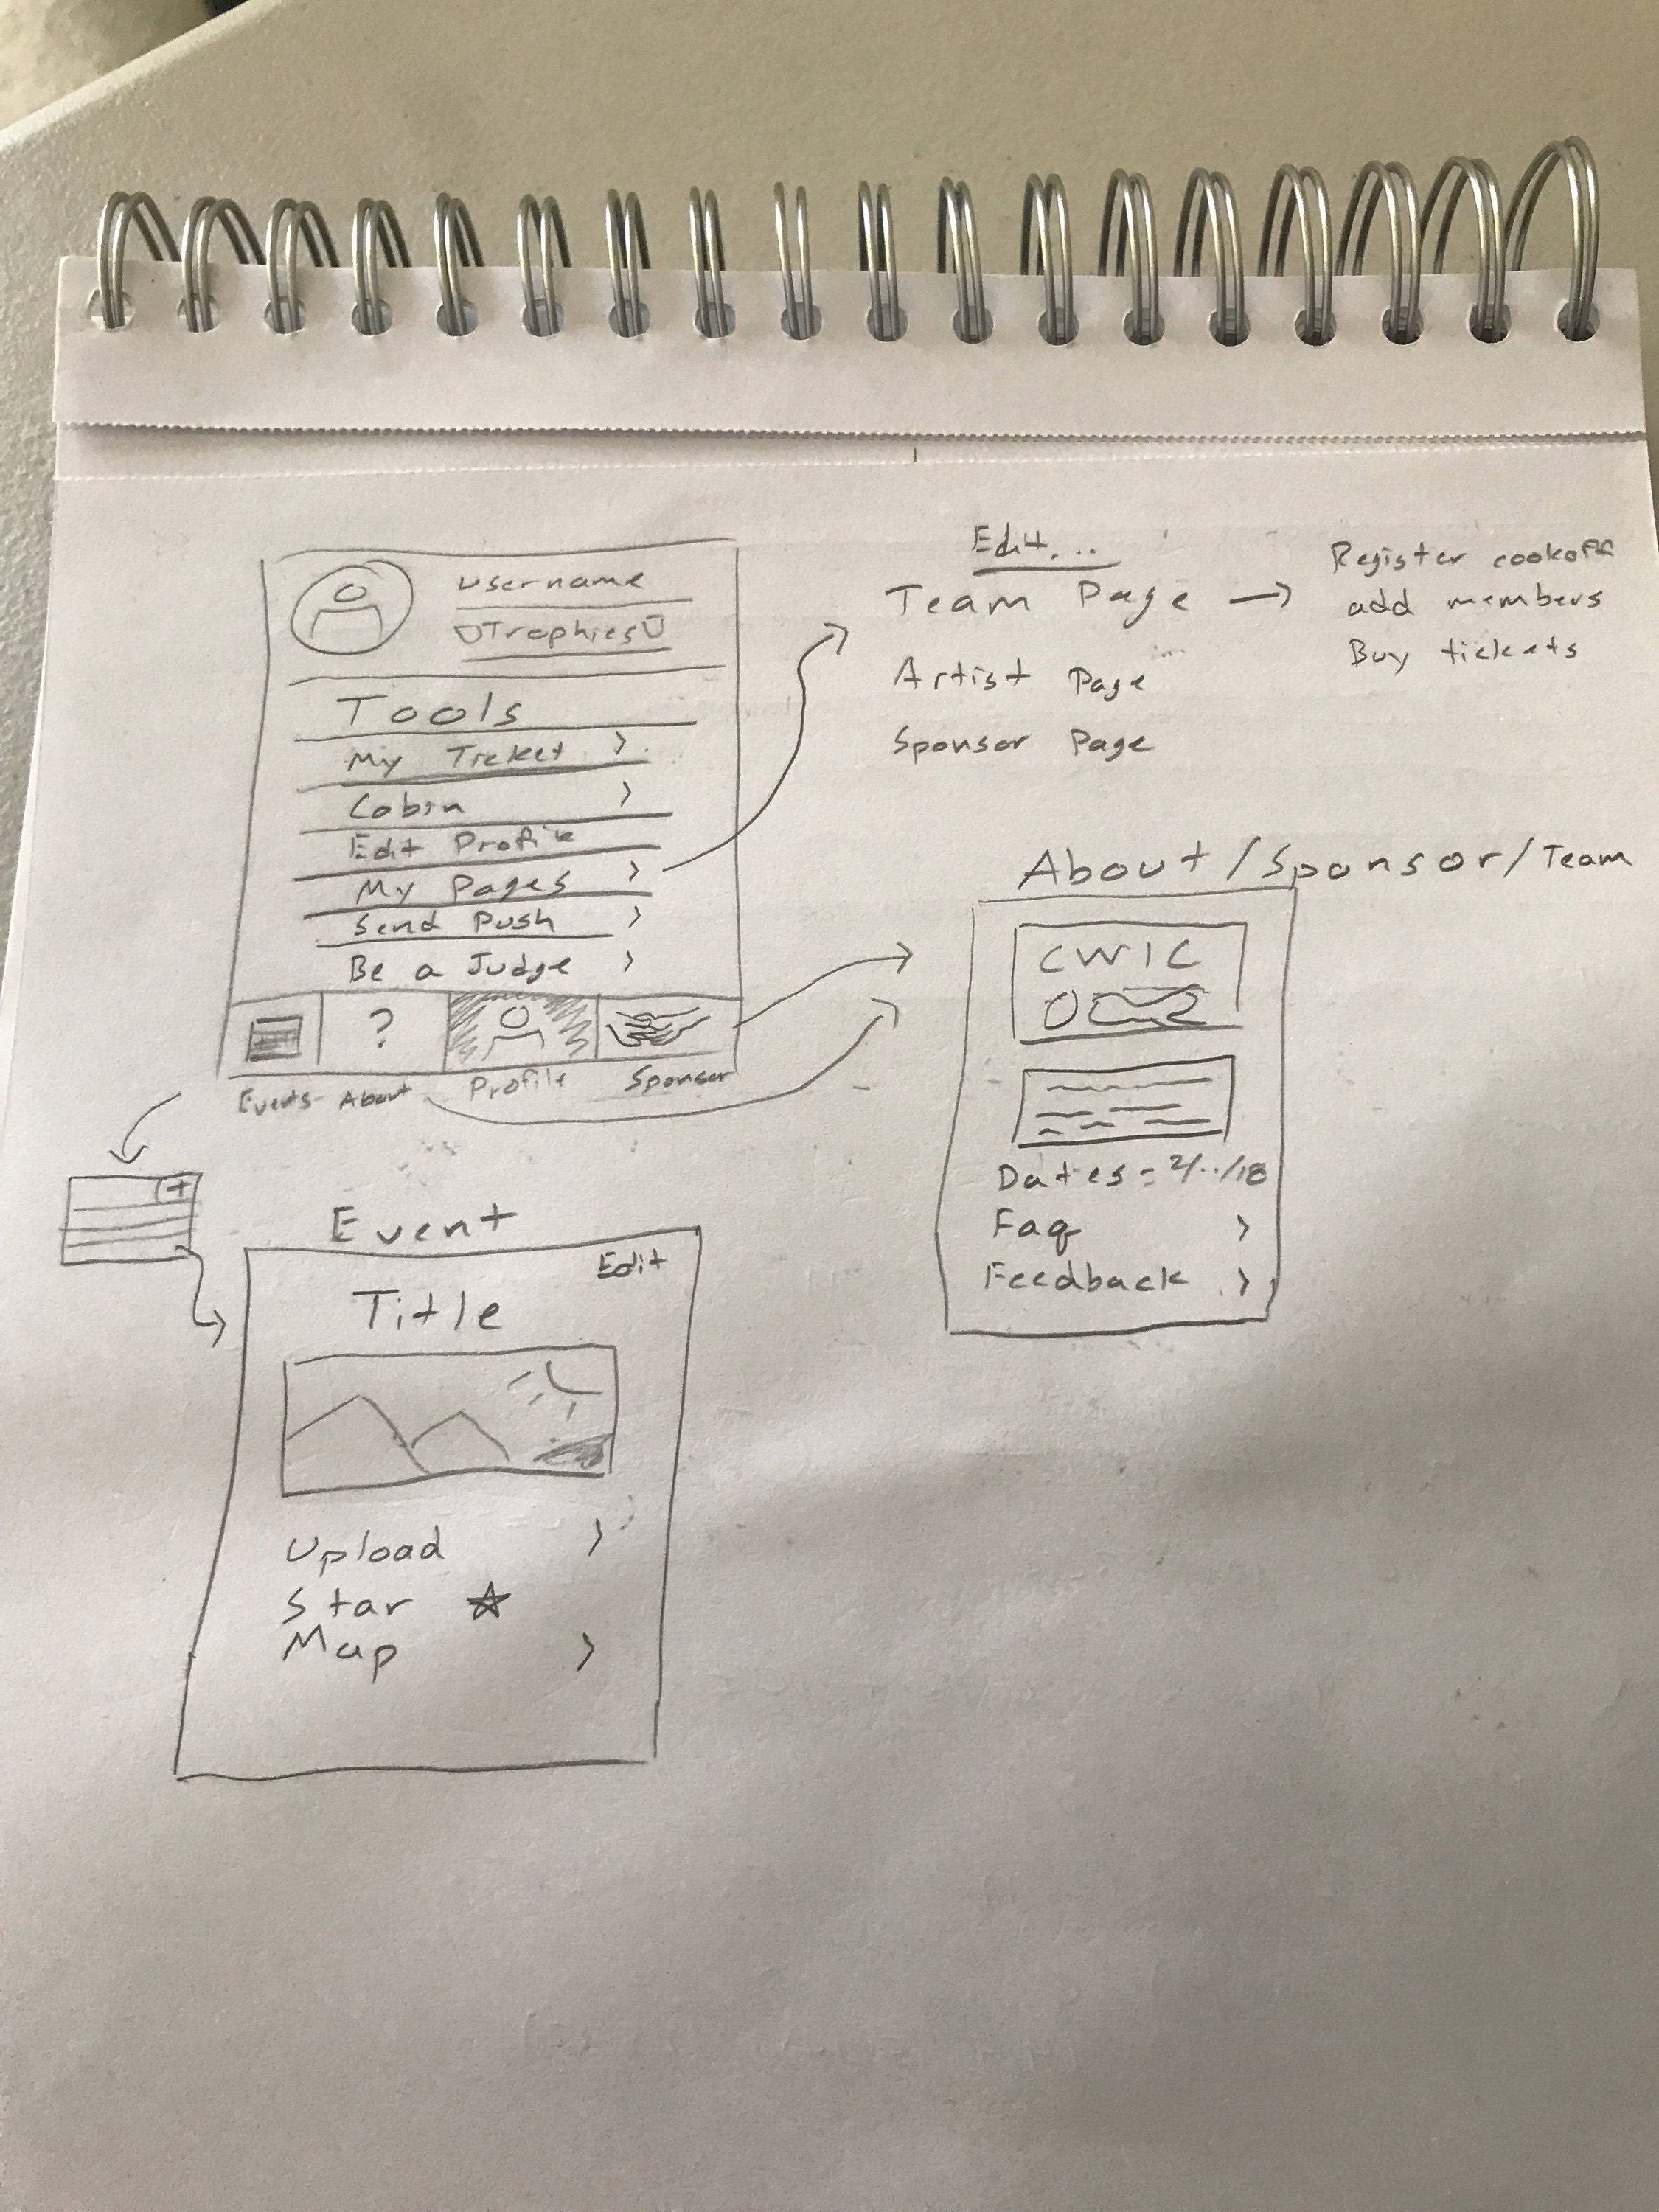 Username
Trophies
Tools
My Ticket >
Cabin >
Edit Profile
My Pages >
Send Push >
Be a Judge >
?
Events About Profile Sponsor
Edit...
Team Page → Register cookoff
add members
Buy tickets
Artist Page
Sponsor Page
About/Sponsor/Team
CWIC
Dates = 2/../18
Faq >
Feedback >
+
Event
Edit
Title
Upload >
Star ☆
Map >